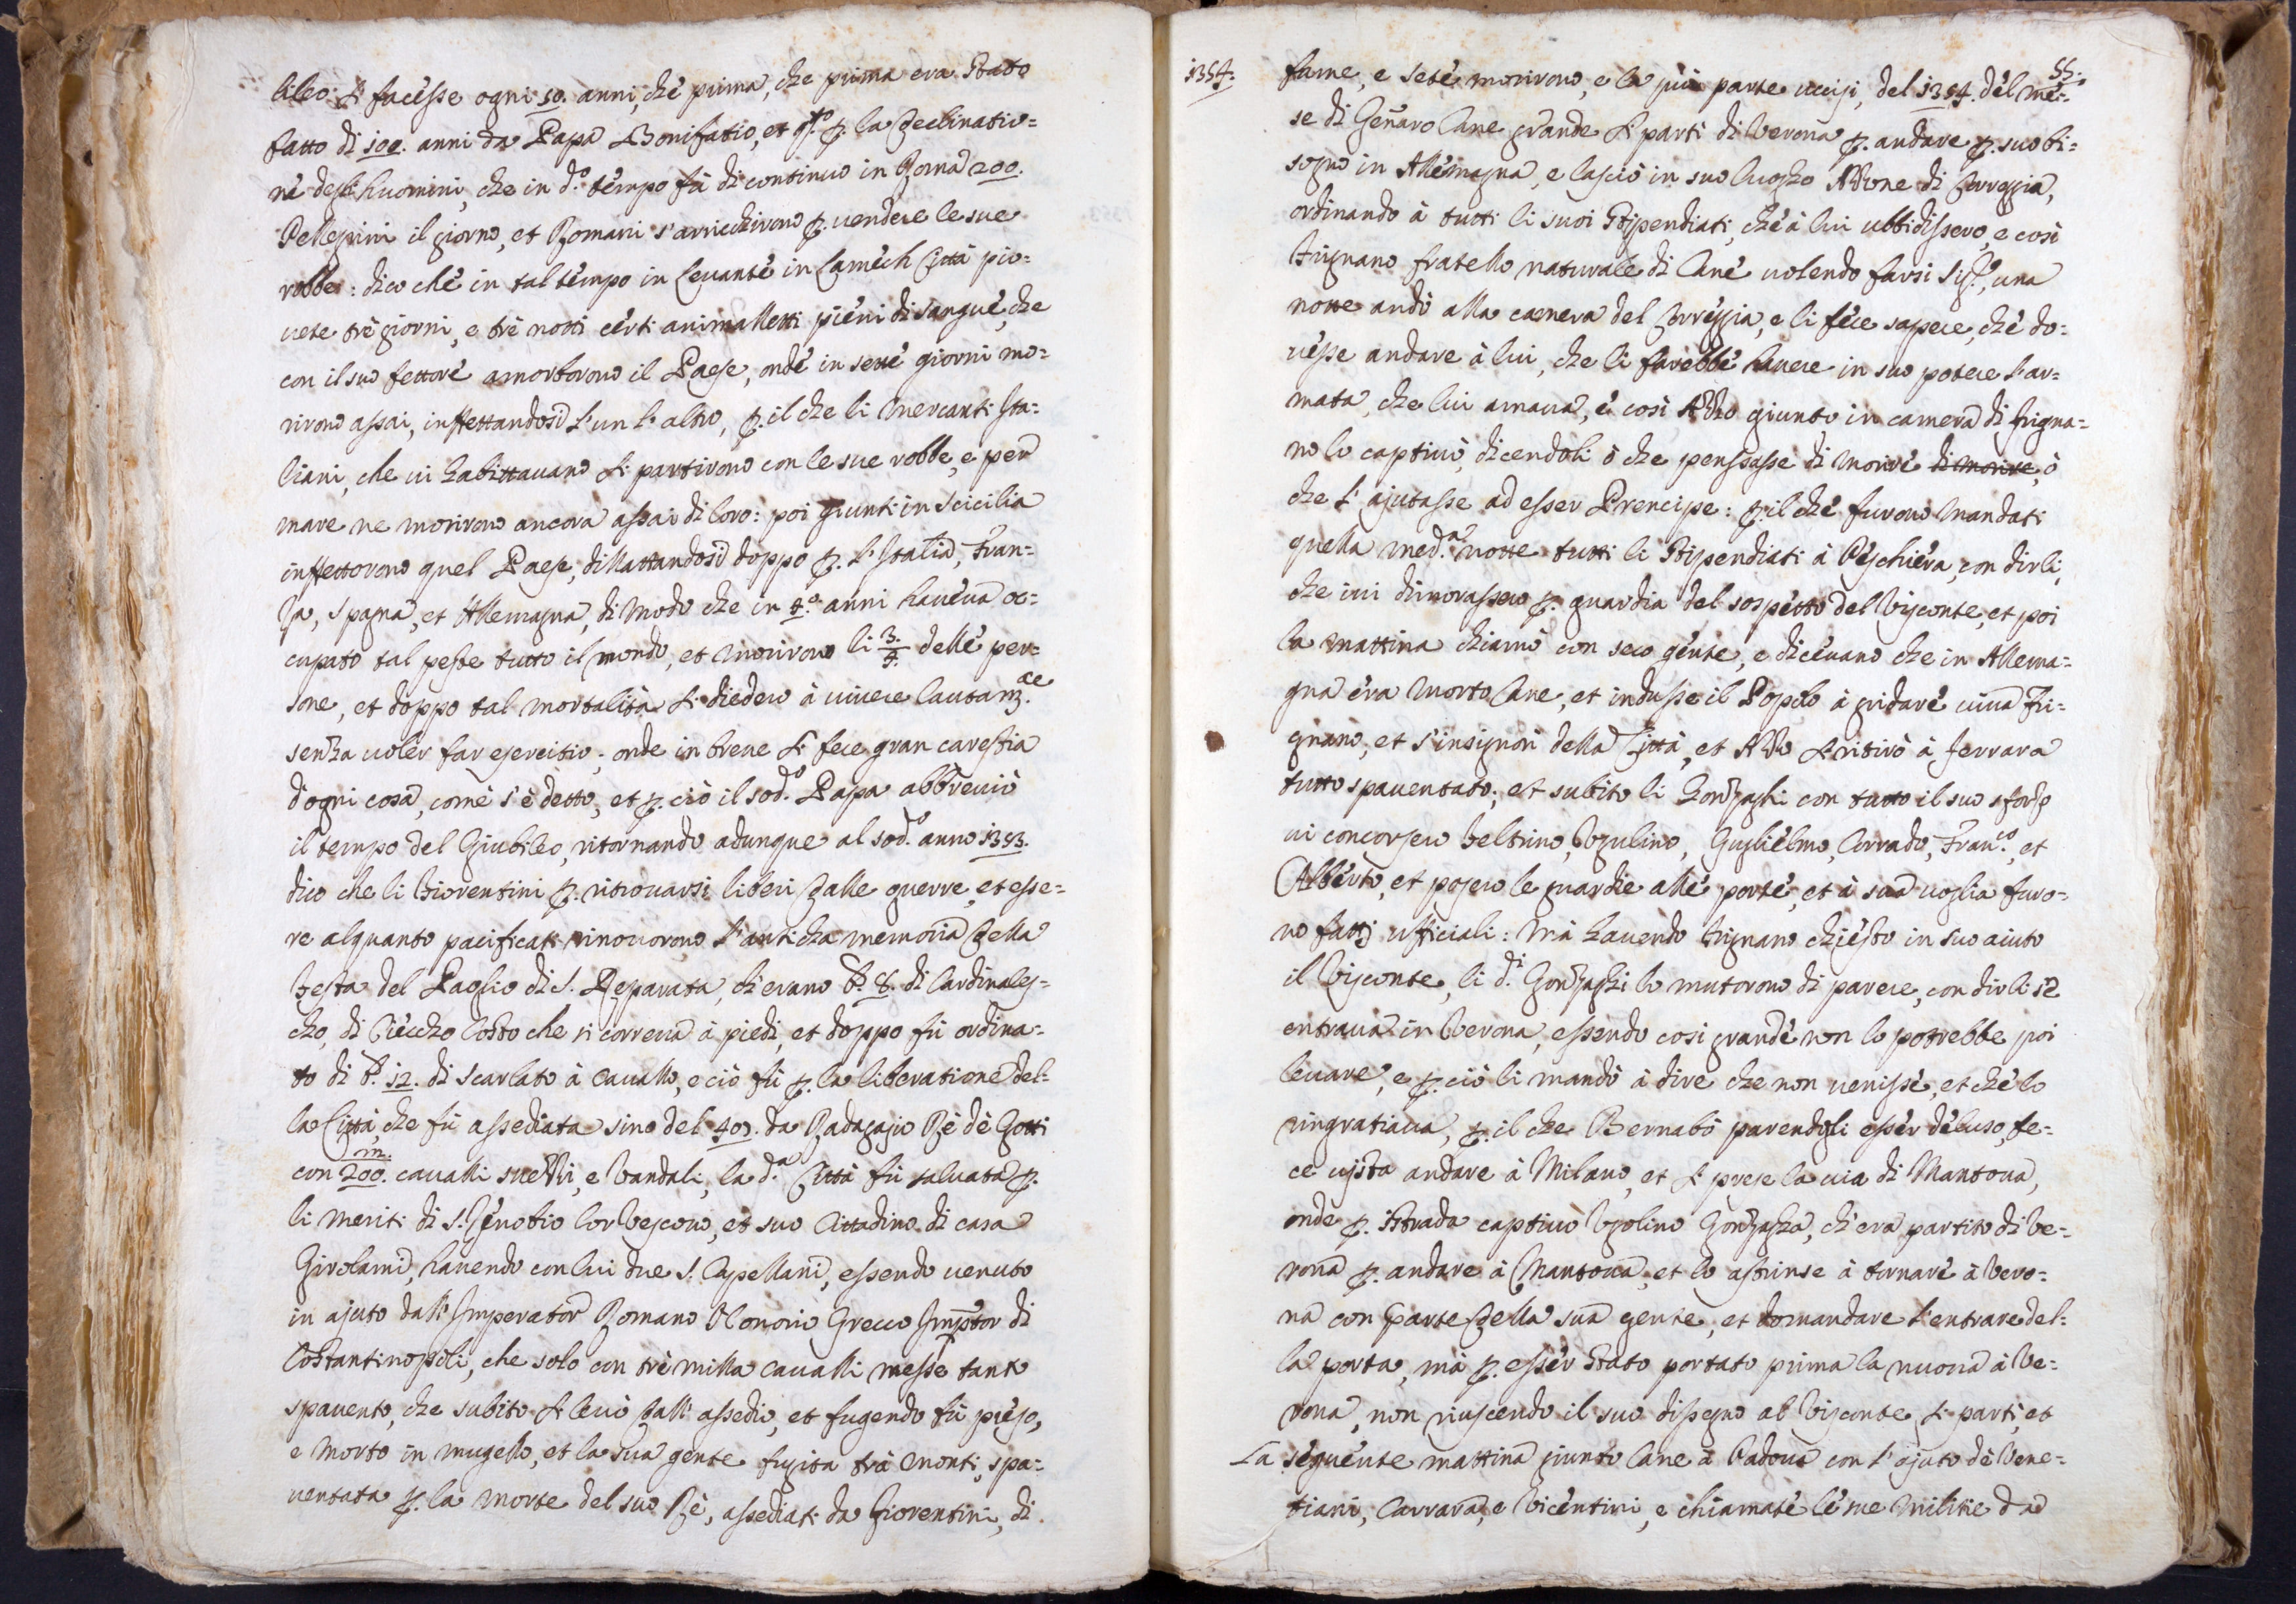 bileo si facesse ogni 50. anni, che prima, che prima era stato
fatto di 100. anni da Papa Bonifatio, et q.to p. la declinatio=
ne degli huomini, che in d.o tempo fù di continuo in Roma 200.
Pellegrini il giorno, et Romani s'arricchirono p. vendere le sue
robbe: dico che in tal tempo in Levante in Lamech Città pio=
vete trè giorni, e trè notti certi animalletti pieni di sangue, che
con il suo fettore amorborono il Paese, onde in sette giorni mo=
rirono assai, inffettandosi l'un l'altro, p. il che li mercanti Ita=
liani, che vi habittavano si partirono con le sue robbe, e per
mare ne morirono ancora assai di loro: poi giunti in Scicilia
inffettorono quel Paese, dillattandosi doppo p. l'Italia, Fran=
za, Spagna, et Allemagna, di modo che in 4.o anni haveva oc=
cupato tal peste tutto il mondo, et morirono li 3/4 delle per=
sone, et doppo tal mortalità si diedero à vivere lautam.te
senza voler far esercitio; onde in breve si fece gran carestia
d'ogni cosa, come s'è detto, et p. ciò il sod.o Papa abbreviò
il tempo del Giubileo, ritornando adunque al sod.o anno 1353.
dico che li Fiorentini p. ritrovarsi liberi dalle guerre, et esse=
re alquanto pacificati rinovorono l'anticha memoria della
festa del Paglio di S. Reparata, ch'erano b. 8. di Cardinales=
cho, di Vecchio Costo che si correva à piedi, et doppo fù ordina=
to di b. 12. di scarlato à cavallo, e ciò fù p. la liberatione del=
la Città, che fù assediata sino del 407. da Radagasio Rè de Gotti
con 200.m cavalli suevi, e Vandali, la d.a Città fù salvata p.
li meriti di S. Zenobio lor Vescovo, et suo Cittadino di casa
Girolami, havendo con lui due S. Capellani, essendo venuto
in ajuto dall'Imperator Romano Honorio Greco Imptor di
Costantinopoli, che solo con trè milla cavalli messe tanto
spavento, che subito si levò dall'assedio, et fugendo fù preso,
e morto in mugello, et la sua gente fugita trà monti, spa=
ventata p. la morte del suo Rè, assediati da Fiorentini, di
55.
1354.
fame, e sete morirono, e la più parte uccisi, del 1354. del me=
se di Gennaro Cane grande si partì di Verona p. andare p. suo bi=
sogno in Allemagna, e lasciò in suo luogho Azzone di Correggia,
ordinando à tutti li suoi stipendiati, che à lui ubbidissero, e così
Frignano fratello naturale di Cane volendo farsi Sig.e, una
notte andò alla camera del Correggia, e li fece sapere, che do=
vesse andare à lui, che li farebbe havere in suo potere l'ar=
mata, che lui amava, e così Azzo giunto in camera di frigna=
no lo captivò, dicendoli ò che pensasse di morire di morire, ò
che l'ajutasse ad esser Prencipe: p. il che furono mandati
quella med.a notte tutti li stipendiati à Peschiera, con dirli,
che ivi dimorassero p. guardia del sospetto del Visconte, et poi
la mattina chiamò con seco gente, e dicevano che in Allema=
gna era morto Cane, et indusse il Popolo à gridare viva Fri=
gnano, et s'insignorì della Città, et Azzo si ritirò à ferrara
tutto spaventato; et subito li Gonzaghi con tutto il suo sforzo
vi concorsero Feltrino, Ugulino, Guglielmo, Corrado, Fran.co, et
Alberto, et posero le guardie alle porte, et à sua voglia furo=
no fatti ufficiali: mà havendo Frignano chiesto in suo aiuto
il Visconte, li d.i Gonzaghi lo mutorono di parere, con dirli se
entrava in Verona, essendo così grande non lo potrebbe poi
levare, e p. ciò li mandò à dire che non venisse, et che lo
ringratiava, p. il che Bernabò parendoli esser deluso, fe=
ce vista andare à Milano, et si prese la via di Mantova,
onde p. istrada captivò Ugolino Gonzagha, ch'era partito di Ve=
rona p. andare à Mantova, et lo astrinse à tornare à Vero=
na con parte della sua gente, et domandare l'entrare del=
la porta, mà p. esser stato portato prima la nuova à Ve=
rona, non riuscendo il suo dissegno al Visconte si partì, et
La seguente mattina giunto Cane à Padova con l'ajuto de Vene=
tiani, Carrara, e Vicentini, e chiamate le sue militie da